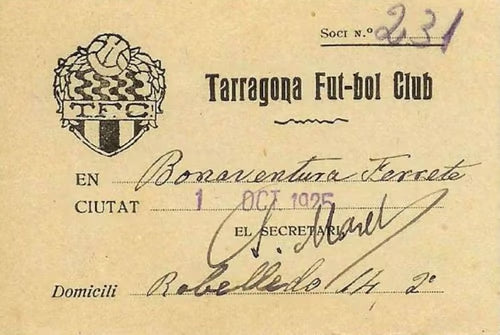 Soci N.º 231
T.F.C
Tarragona Fut-bol Club
EN Bonaventura Ferrete
CIUTAT 1 OCT 1925
EL SECRETARI,
Domicili Robelledo 14, 2º